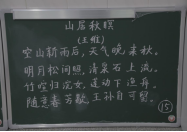 山居秋暝
(王维)
空山新雨后，天气晚来秋。
明月松间照，清泉石上流。
竹喧归浣女，莲动下渔舟。
随意春芳歇，王孙自可留。
15